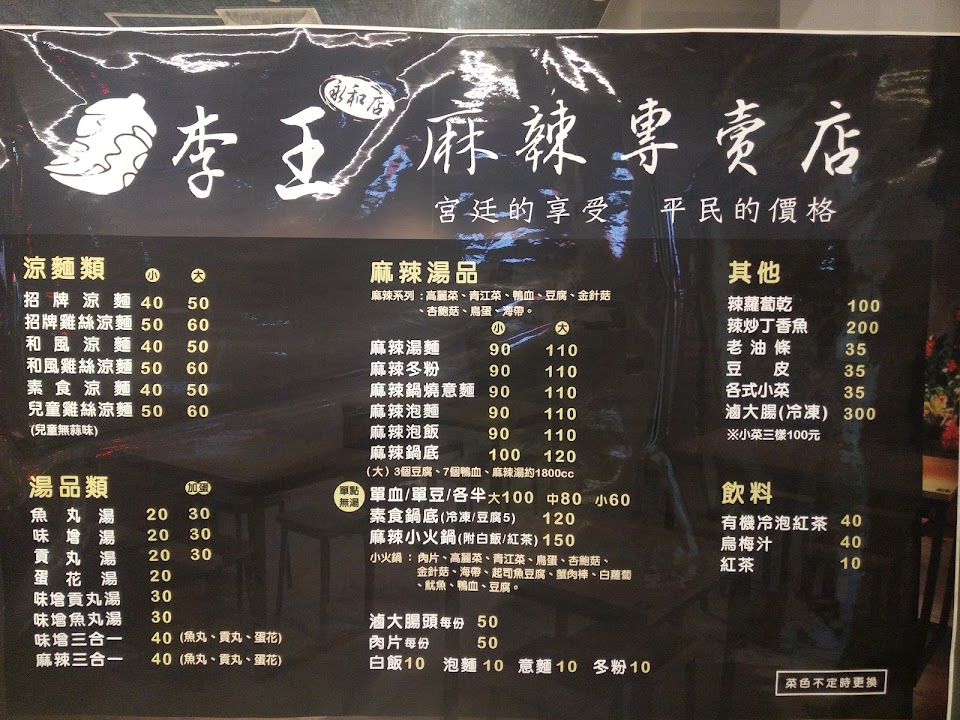 李王 永和店 麻辣專賣店
宮廷的享受 平民的價格
涼麵類 小 大
招牌涼麵 40 50
招牌雞絲涼麵 50 60
和風涼麵 40 50
和風雞絲涼麵 50 60
素食涼麵 40 50
兒童雞絲涼麵 50 60
(兒童無蒜味)
湯品類 加蛋
魚丸湯 20 30
味增湯 20 30
貢丸湯 20 30
蛋花湯 20
味增貢丸湯 30
味增魚丸湯 30
味增三合一 40 (魚丸、貢丸、蛋花)
麻辣三合一 40 (魚丸、貢丸、蛋花)
麻辣湯品
麻辣系列:高麗菜、青江菜、鴨血、豆腐、金針菇
、杏鮑菇、鳥蛋、海帶。
小 大
麻辣湯麵 90 110
麻辣冬粉 90 110
麻辣鍋燒意麵 90 110
麻辣泡麵 90 110
麻辣泡飯 90 110
麻辣鍋底 100 120
(大)3個豆腐、7個鴨血、麻辣湯約1800cc
單點無湯 單血/單豆/各半 大100 中80 小60
素食鍋底(冷凍/豆腐5) 120
麻辣小火鍋(附白飯/紅茶) 150
小火鍋:肉片、高麗菜、青江菜、鳥蛋、杏鮑菇、
金針菇、海帶、起司魚豆腐、蟹肉棒、白蘿蔔
、魷魚、鴨血、豆腐。
滷大腸頭每份 50
肉片每份 50
白飯10 泡麵10 意麵10 冬粉10
其他
辣蘿蔔乾 100
辣炒丁香魚 200
老油條 35
豆皮 35
各式小菜 35
滷大腸(冷凍) 300
※小菜三樣100元
飲料
有機冷泡紅茶 40
烏梅汁 40
紅茶 10
菜色不定時更換